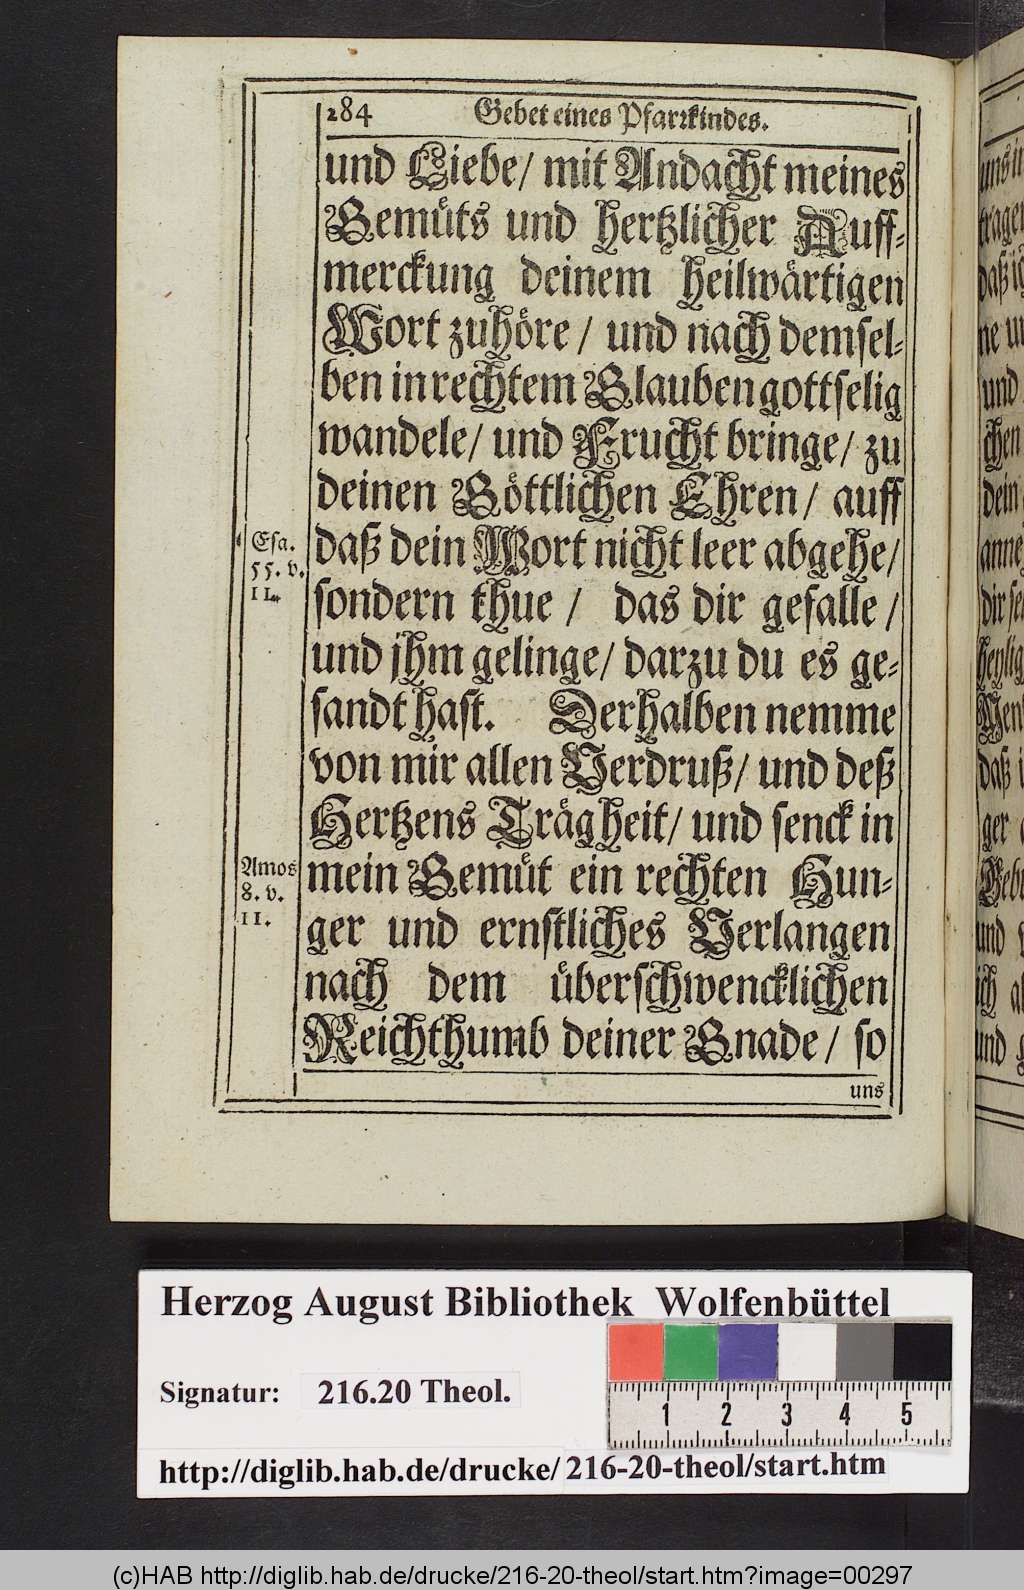 284 Gebet eines Pfarrkindes.
und Liebe/ mit Andacht meines
Gemüts und hertzlicher Auff-
merckung deinem heilwärtigen
Wort zuhöre / und nach demsel-
ben in rechtem Glauben gottselig
wandele/ und Frucht bringe/ zu
deinen Göttlichen Ehren/ auff
daß dein Wort nicht leer abgehe/
sondern thue / das dir gefalle /
und jhm gelinge/ darzu du es ge-
sandt hast. Derhalben nemme
von mir allen Verdruß/ und deß
Hertzens Trägheit/ und senck in
mein Gemüt ein rechten Hun-
ger und ernstliches Verlangen
nach dem überschwencklichen
Reichthumb deiner Gnade/ so
uns
Esa.
55. v.
11.
Amos
8. v.
11.
daß
ne
und
chen
dein
Herzog August Bibliothek Wolfenbüttel
Signatur: 216.20 Theol.
1 2 3 4 5
http://diglib.hab.de/drucke/216-20-theol/start.htm
(c)HAB http://diglib.hab.de/drucke/216-20-theol/start.htm?image=00297